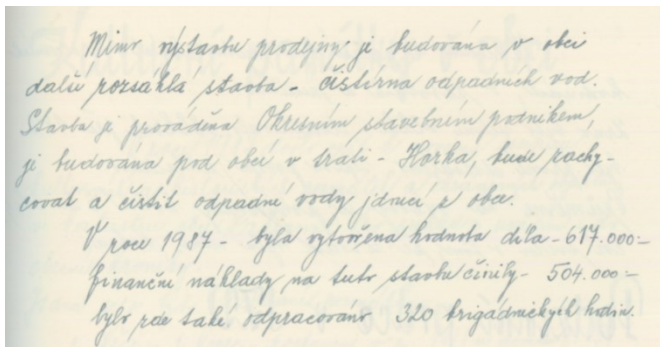 Mimo výstavbu prodejny je budována v obci
další rozsáhlá stavba - čistírna odpadních vod.
Stavba je prováděna Okresním stavebním podnikem,
je budována pod obcí v trati - Horka, bude zachy-
covat a čistit odpadní vody jdoucí z obce.
V roce 1987 - byla vytvořena hodnota díla - 617.000:-
finanční náklady na tuto stavbu činily - 504.000:-
bylo zde také odpracováno 320 brigádnických hodin.